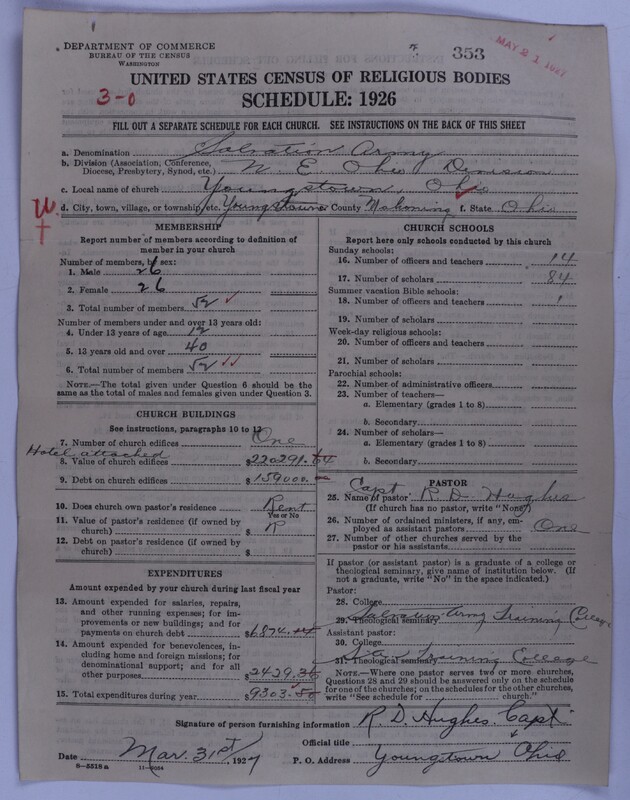 DEPARTMENT OF COMMERCE
BUREAU OF THE CENSUS
WASHINGTON
353
MAY 21 1927
UNITED STATES CENSUS OF RELIGIOUS BODIES
3-0
SCHEDULE: 1926
FILL OUT A SEPARATE SCHEDULE FOR EACH CHURCH. SEE INSTRUCTIONS ON THE BACK OF THIS SHEET
a. Denomination Salvation Army
b. Division (Association, Conference, Diocese, Presbytery, Synod, etc.) N. E. Ohio Division
c. Local name of church Youngstown, Ohio
d. City, town, village, or township, etc. Youngstown County Mahoning f. State Ohio
MEMBERSHIP
Report number of members according to definition of member in your church
Number of members, by sex:
1. Male 26
2. Female 26
3. Total number of members 52
Number of members under and over 13 years old:
4. Under 13 years of age 12
5. 13 years old and over 40
6. Total number of members 52
NOTE.—The total given under Question 6 should be the same as the total of males and females given under Question 3.
CHURCH BUILDINGS
See instructions, paragraphs 10 to 12
7. Number of church edifices One
Hotel attached
8. Value of church edifices $220291.64
9. Debt on church edifices $159000.00
10. Does church own pastor's residence? Rent
Yes or No
11. Value of pastor's residence (if owned by church) $ R
12. Debt on pastor's residence (if owned by church) $
EXPENDITURES
Amount expended by your church during last fiscal year
13. Amount expended for salaries, repairs, and other running expenses; for improvements or new buildings; and for payments on church debt $6874.14
14. Amount expended for benevolences, including home and foreign missions; for denominational support; and for all other purposes $2429.36
15. Total expenditures during year $9303.50
CHURCH SCHOOLS
Report here only schools conducted by this church
Sunday schools:
16. Number of officers and teachers 14
17. Number of scholars 84
Summer vacation Bible schools:
18. Number of officers and teachers
19. Number of scholars
Week-day religious schools:
20. Number of officers and teachers
21. Number of scholars
Parochial schools:
22. Number of administrative officers
23. Number of teachers—
a. Elementary (grades 1 to 8)
b. Secondary
24. Number of scholars—
a. Elementary (grades 1 to 8)
b. Secondary
PASTOR
25. Name of pastor Capt R D Hughes
(If church has no pastor, write "None")
26. Number of ordained ministers, if any, employed as assistant pastors One
27. Number of other churches served by the pastor or his assistants
If pastor (or assistant pastor) is a graduate of a college or theological seminary, give name of institution below. (If not a graduate, write "No" in the space indicated.)
Pastor:
28. College
29. Theological seminary Salvation Army Training College
Assistant pastor:
30. College
31. Theological seminary Training College
NOTE.—Where one pastor serves two or more churches, Questions 28 and 29 should be answered only on the schedule for one of the churches; on the schedules for the other churches, write "See schedule for church."
Signature of person furnishing information R. D. Hughes. Capt
Official title
Date Mar. 31st, 1927
P. O. Address Youngtown Ohio
8-5518 a